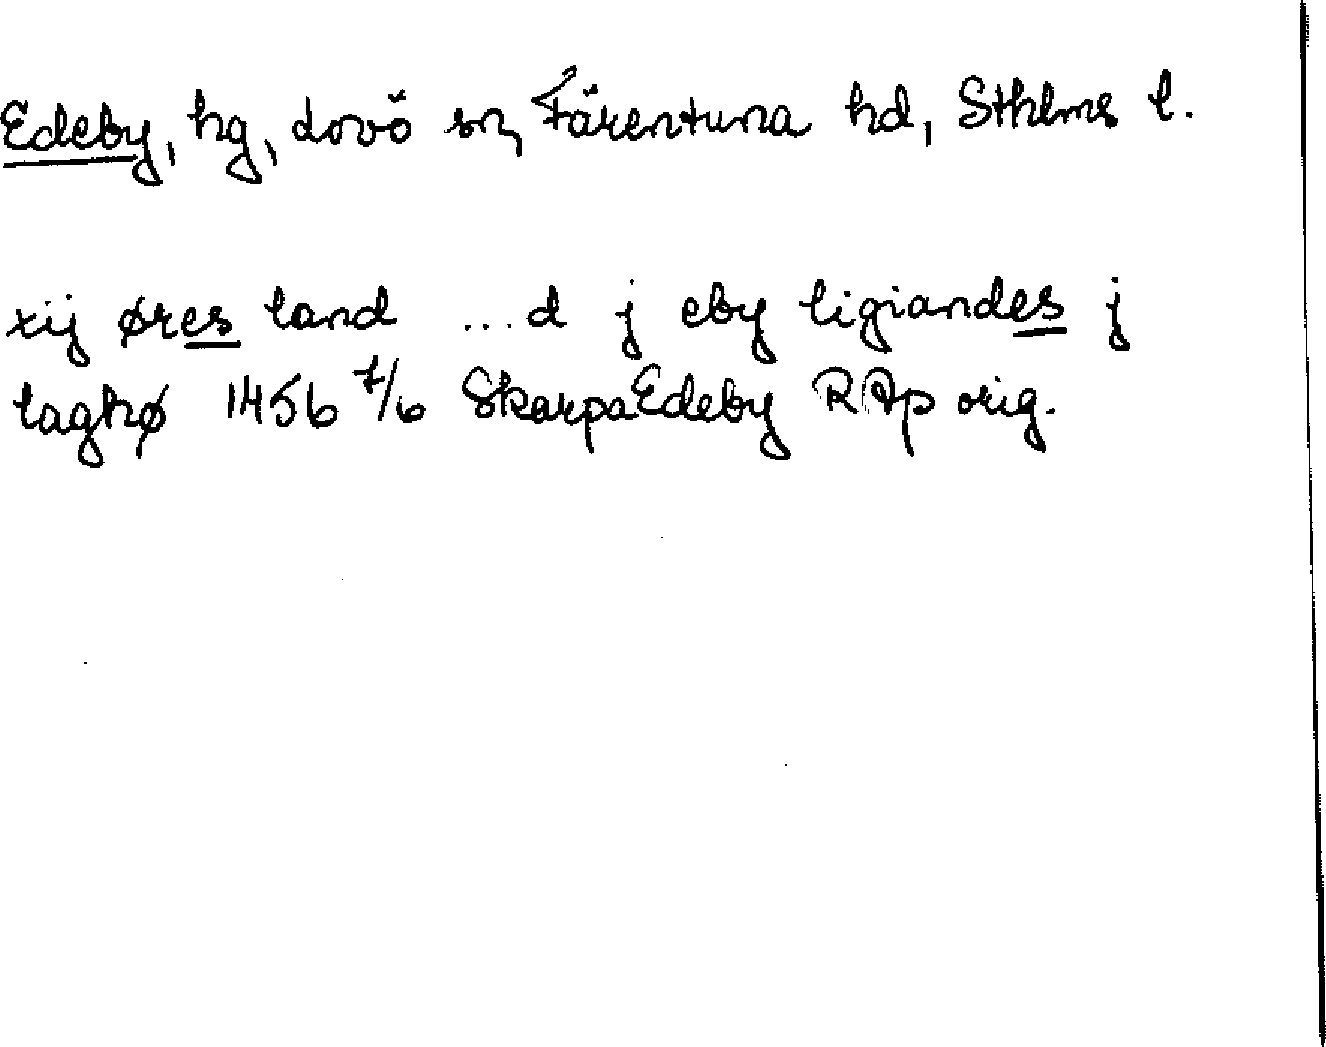 Edeby, hg, Lovö sn, Färentuna hd, Sthlms l.
xij øres land ...d j eby ligiandes j
laghø 1456 7/6 SkarpaEdeby RAp orig.